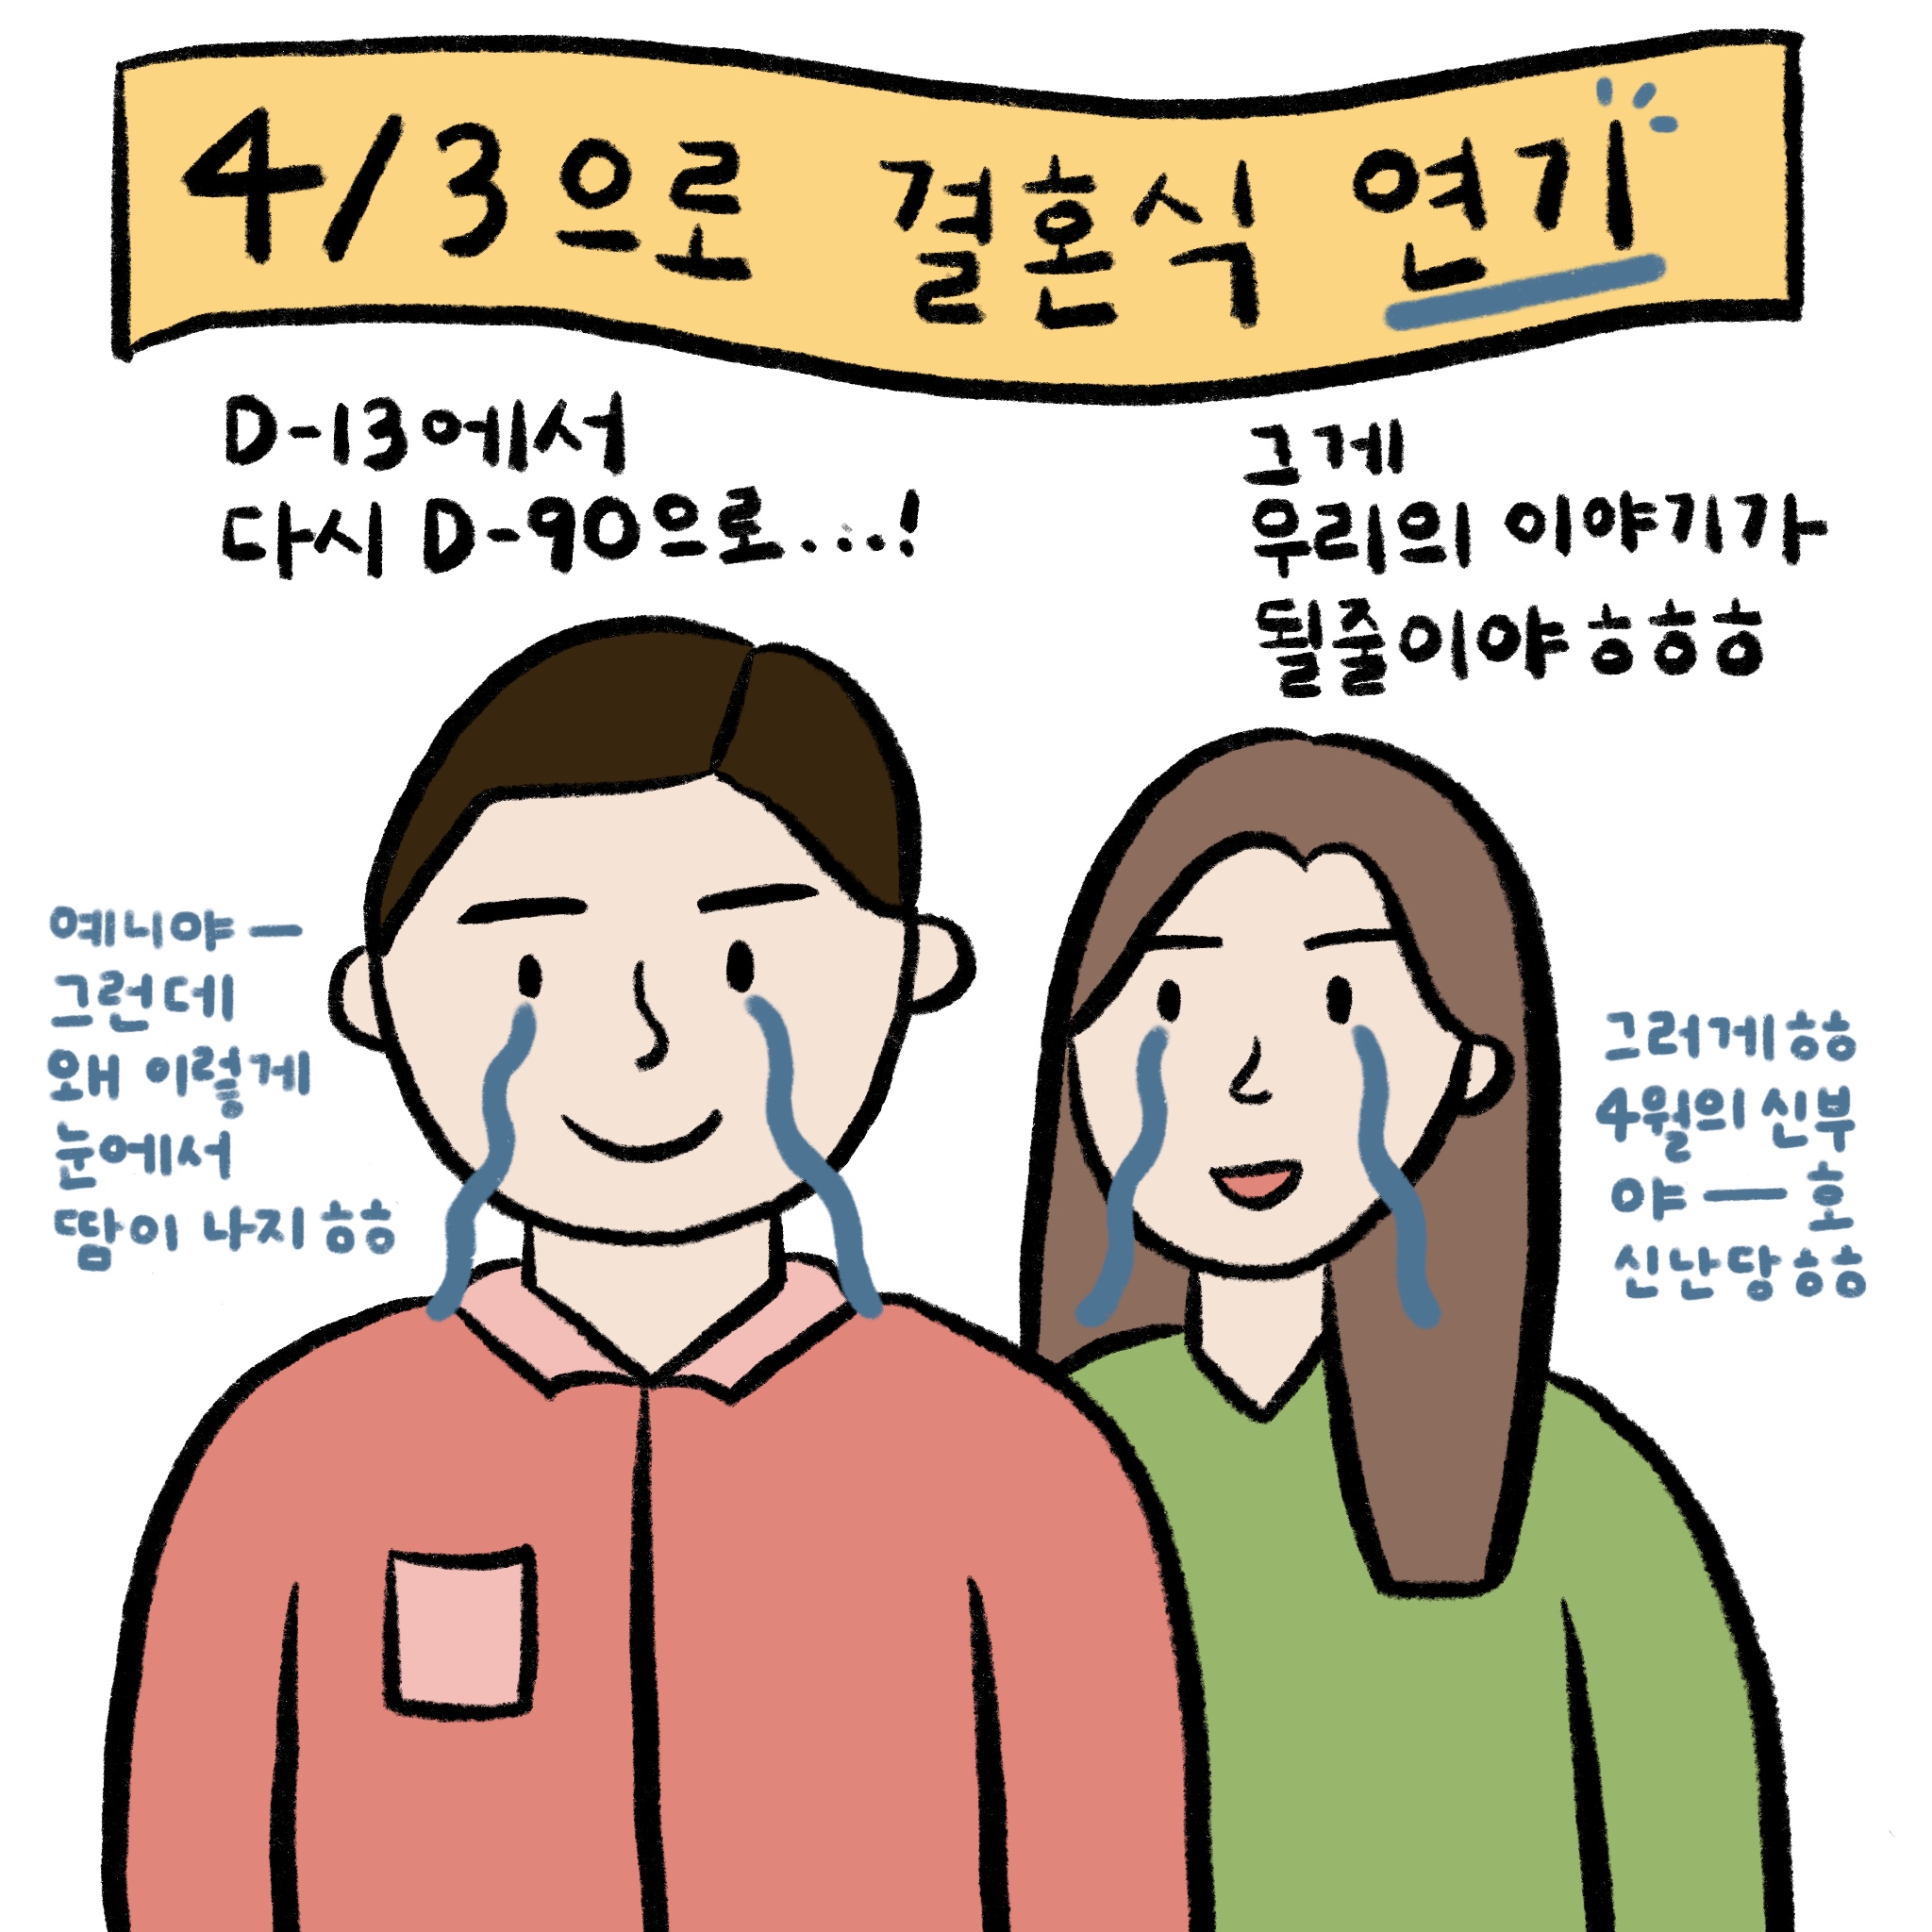 4/3으로 결혼식 연기
D-13에서
다시 D-90으로...!
그게
우리의 이야기가
될줄이야ㅎㅎㅎ
예니야—
그런데
왜 이렇게
눈에서
땀이 나지ㅎㅎ
그러게ㅎㅎ
4월의 신부
야—호
신난당ㅎㅎ